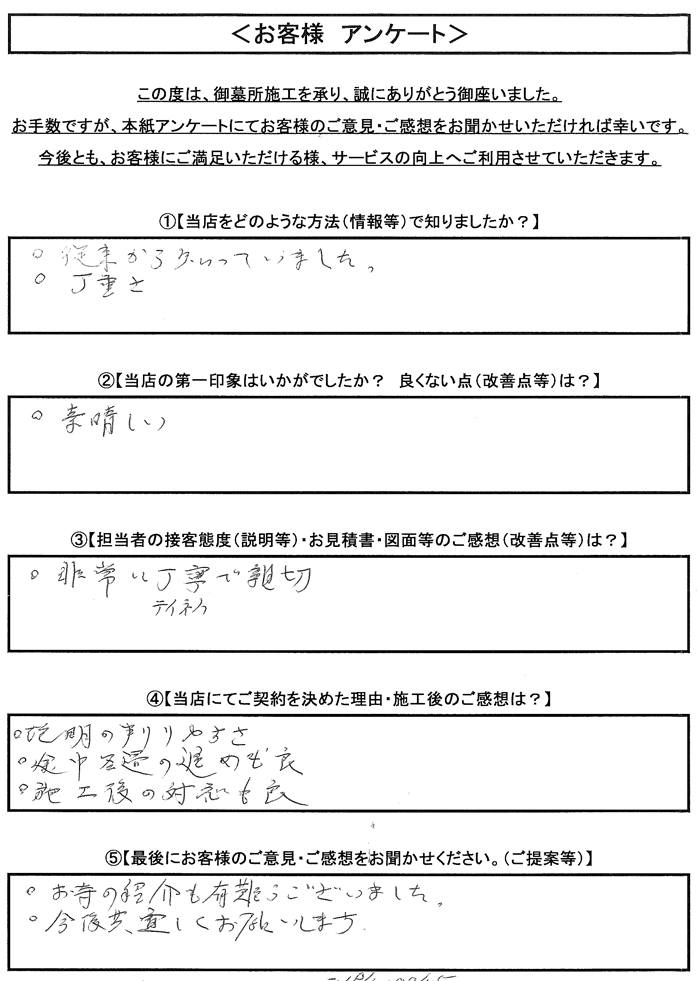 ＜お客様 アンケート＞
この度は、御墓所施工を承り、誠にありがとう御座いました。
お手数ですが、本紙アンケートにてお客様のご意見・ご感想をお聞かせいただければ幸いです。
今後とも、お客様にご満足いただける様、サービスの向上へご利用させていただきます。
①【当店をどのような方法（情報等）で知りましたか？】
○ 従来から知っていました。
○ 丁重さ
②【当店の第一印象はいかがでしたか？ 良くない点（改善点等）は？】
○ 素晴しい
③【担当者の接客態度（説明等）・お見積書・図面等のご感想（改善点等）は？】
○ 非常に丁寧で親切
テイネイ
④【当店にてご契約を決めた理由・施工後のご感想は？】
○説明の判りやすさ
○途中の進めも良
○施工後の対応も良
⑤【最後にお客様のご意見・ご感想をお聞かせください。（ご提案等）】
○ お寺の紹介も有難うございました。
○ 今後共、宜しくお願いします.